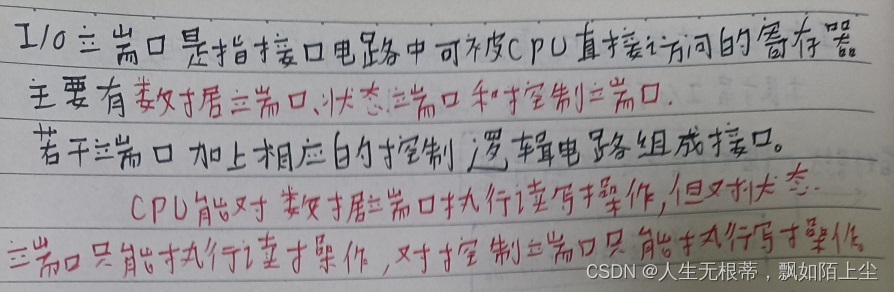 I/O端口是指接口电路中可被CPU直接访问的寄存器
主要有数据端口、状态端口和控制端口.
若干端口加上相应的控制逻辑电路组成接口。
CPU能对数据端口执行读写操作,但对状态
端口只能执行读操作,对控制端口只能执行写操作。
CSDN @人生无根蒂,飘如陌上尘